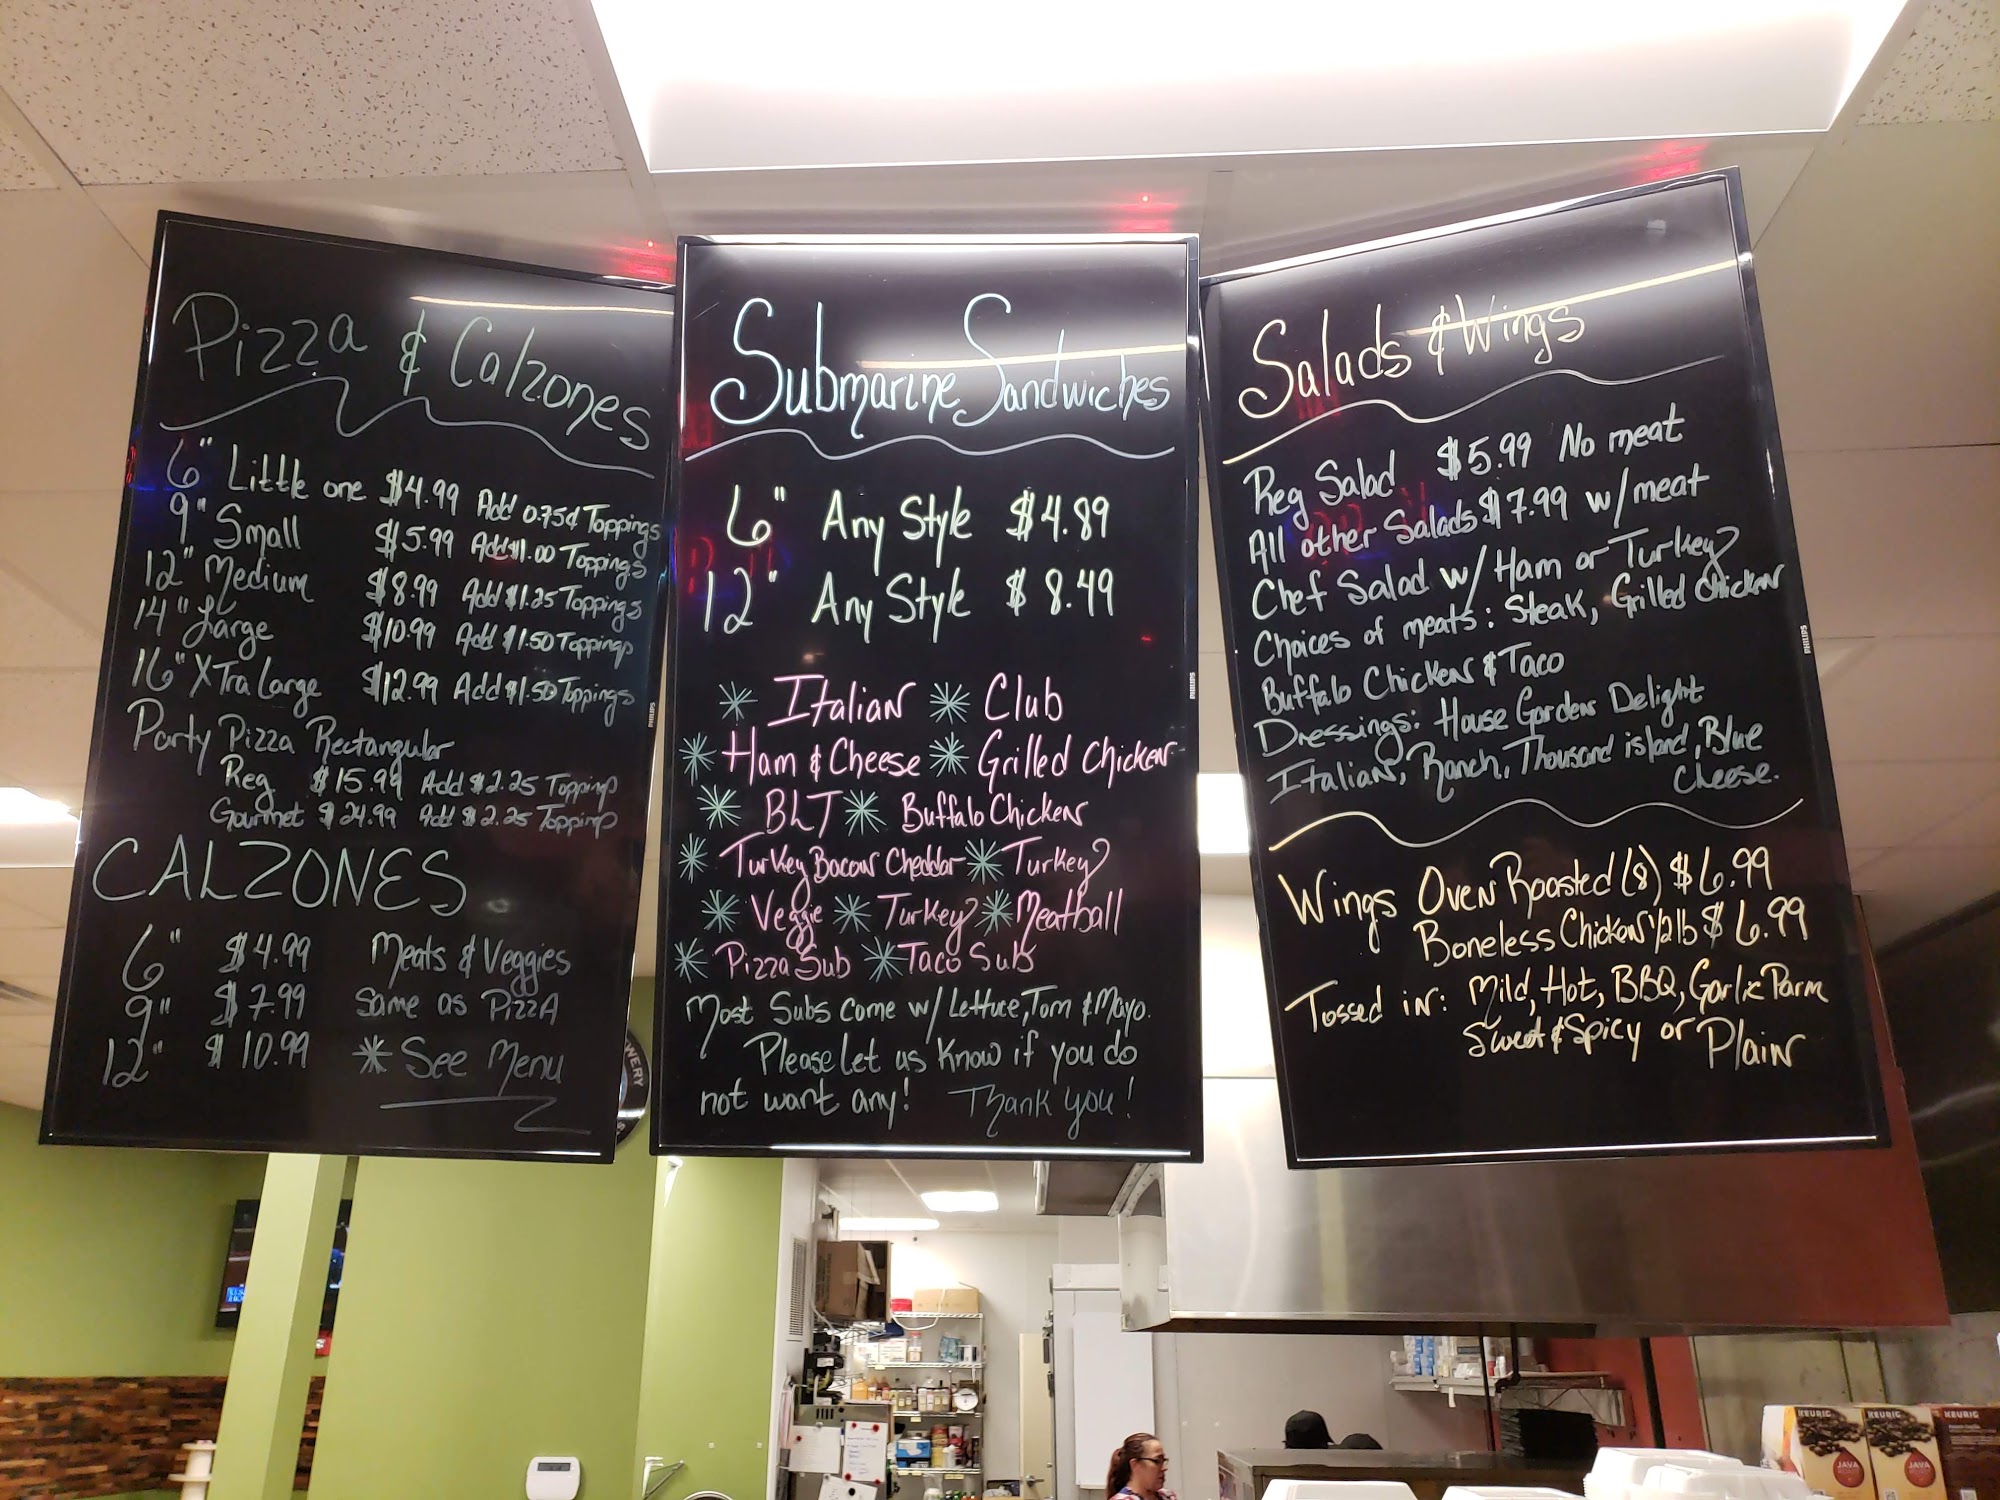 Pizza & Calzones
6" Little one $4.99 Add 0.75¢ Toppings
9" Small $5.99 Add $1.00 Toppings
12" Medium $8.99 Add $1.25 Toppings
14" Large $10.99 Add $1.50 Toppings
16" XTra Large $12.99 Add $1.50 Toppings
Party Pizza Rectangular
Reg $15.99 Add $2.25 Topping
Gourmet $24.99 Add $2.25 Topping
CALZONES
6" $4.99 Meats & Veggies
9" $7.99 Same as PizzA
12" $10.99 * See Menu
PHILIPS
Submarine Sandwiches
6" Any Style $4.89
12" Any Style $8.49
* Italian * Club
* Ham & Cheese * Grilled Chicken
* BLT * Buffalo Chicken
* Turkey Bacon Cheddar * Turkey
* Veggie * Turkey * Meatball
* Pizza Sub * Taco Sub
Most Subs come w/ Lettuce, Tom & Mayo.
Please Let us Know if you do
not want any! Thank you!
PHILIPS
Salads & Wings
Reg Salad $5.99 No meat
All other Salads $7.99 w/meat
Chef Salad w/ Ham or Turkey
Choices of meats: Steak, Grilled Chicken
Buffalo Chicken & Taco
Dressings: House Garden Delight
Italian, Ranch, Thousand island, Blue
Cheese.
Wings Oven Roasted (8) $6.99
Boneless Chicken 1/2 lb $6.99
Tossed in: Mild, Hot, BBQ, Garlic Parm
Sweet & Spicy or Plain
PHILIPS
KEURIG
KEURIG
KEURIG
JAVA
JAVA